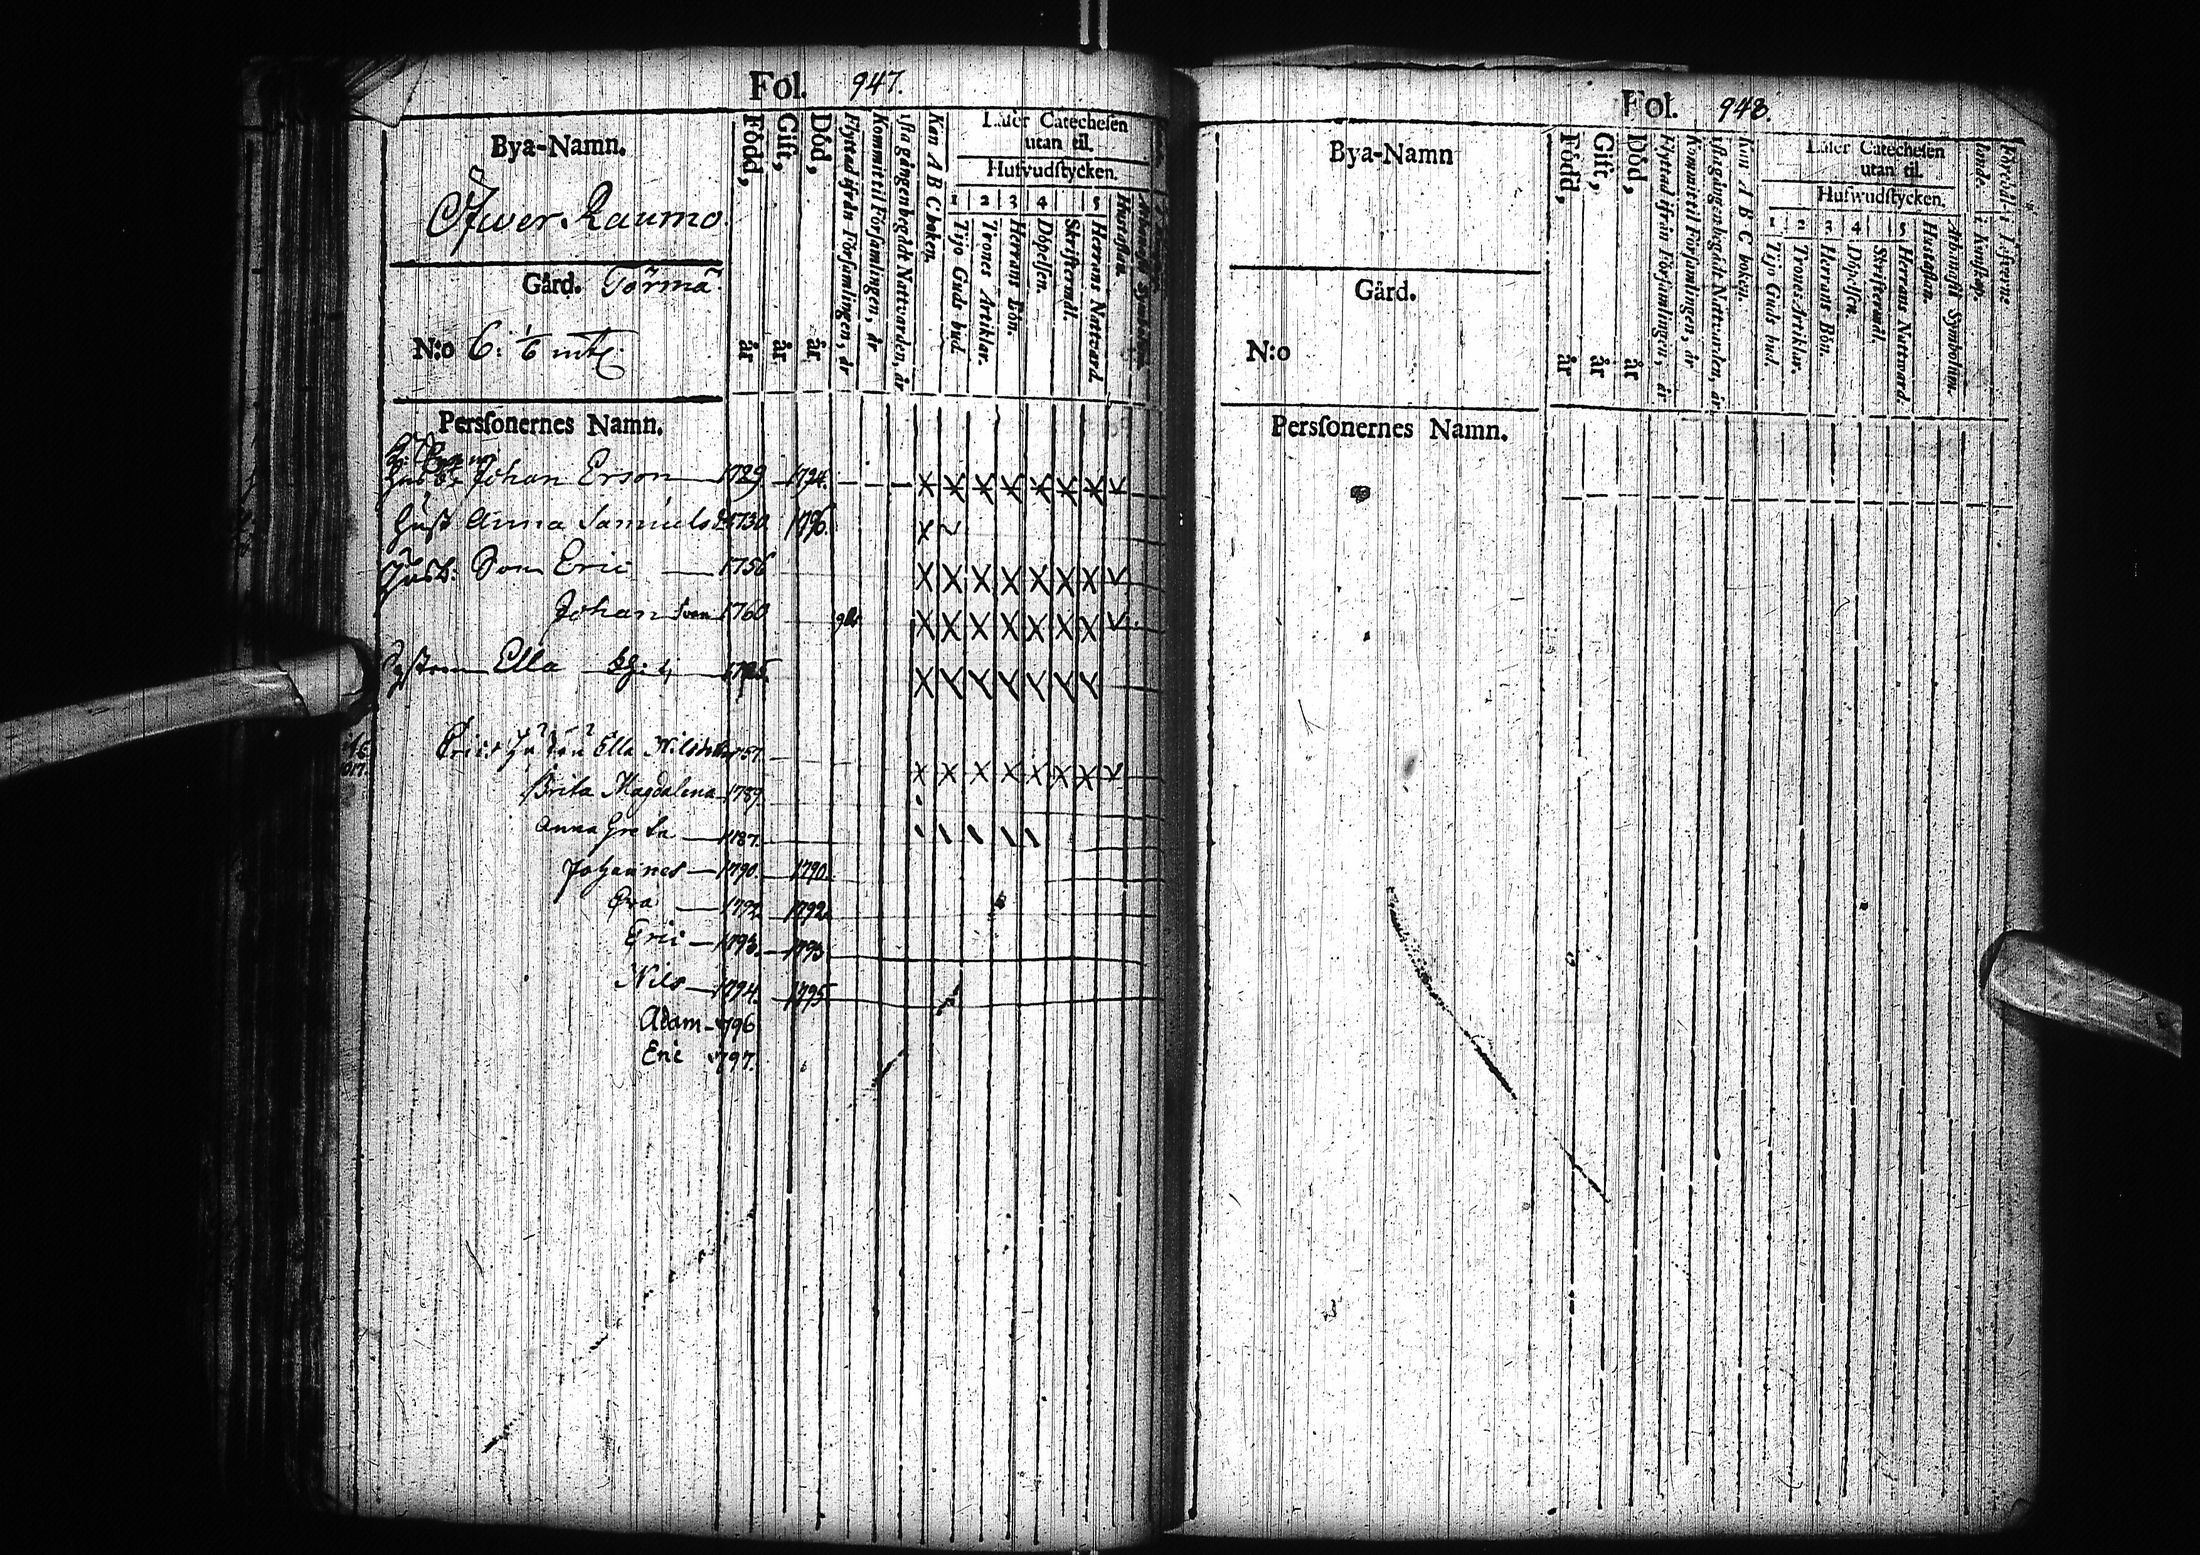 Fol. 947.
Bya-Namn.
Öfwer Raumo.
Gård. Törmä.
N:o 6. 1/6 mtl.
Personernes Namn.
Född, år
Gift, år
Död, år
Flyttad ifrån Församlingen, år
Kommit til Församlingen, år
1sta gången begådt Nattvarden, år
Kan A B C boken.
Läser Catechesen
utan til.
Hufvudstycken.
1 2 3 4 5
Tijo Guds bud.
Trones Artiklar.
Herrans Bön.
Döpelsen.
Skriftermål.
Herrans Nattvard.
Hustaflan.
Johan Erson 1729 1794.
Hust Anna Samuels 1730 1796.
Husb: Son Eric 1756
Johan Son 1760
Ella
Eric: Ella Nilsdotter 1757.
Brita Magdalena 1789
Anna Greta 1787.
Johannes 1790. 1790.
1792. 1792.
Eric 1793. 1793
Nils 1794. 1795
Adam 1796
Eric 1797.
Fol. 948.
Bya-Namn
Gård.
N:o
Personernes Namn.
Född, år
Gift, år
Död, år
Flyttad ifrån Församlingen, år
Kommit til Församlingen, år
1sta gången begådt Nattvarden, år
Kan A B C boken.
Läser Catechesen
utan til.
Hufwudstycken.
1 2 3 4 5
Tijo Guds bud.
Trones Artiklar.
Herrans Bön.
Döpelsen.
Skriftermål.
Herrans Nattward.
Hustaflan.
Athanasii Symbolum.